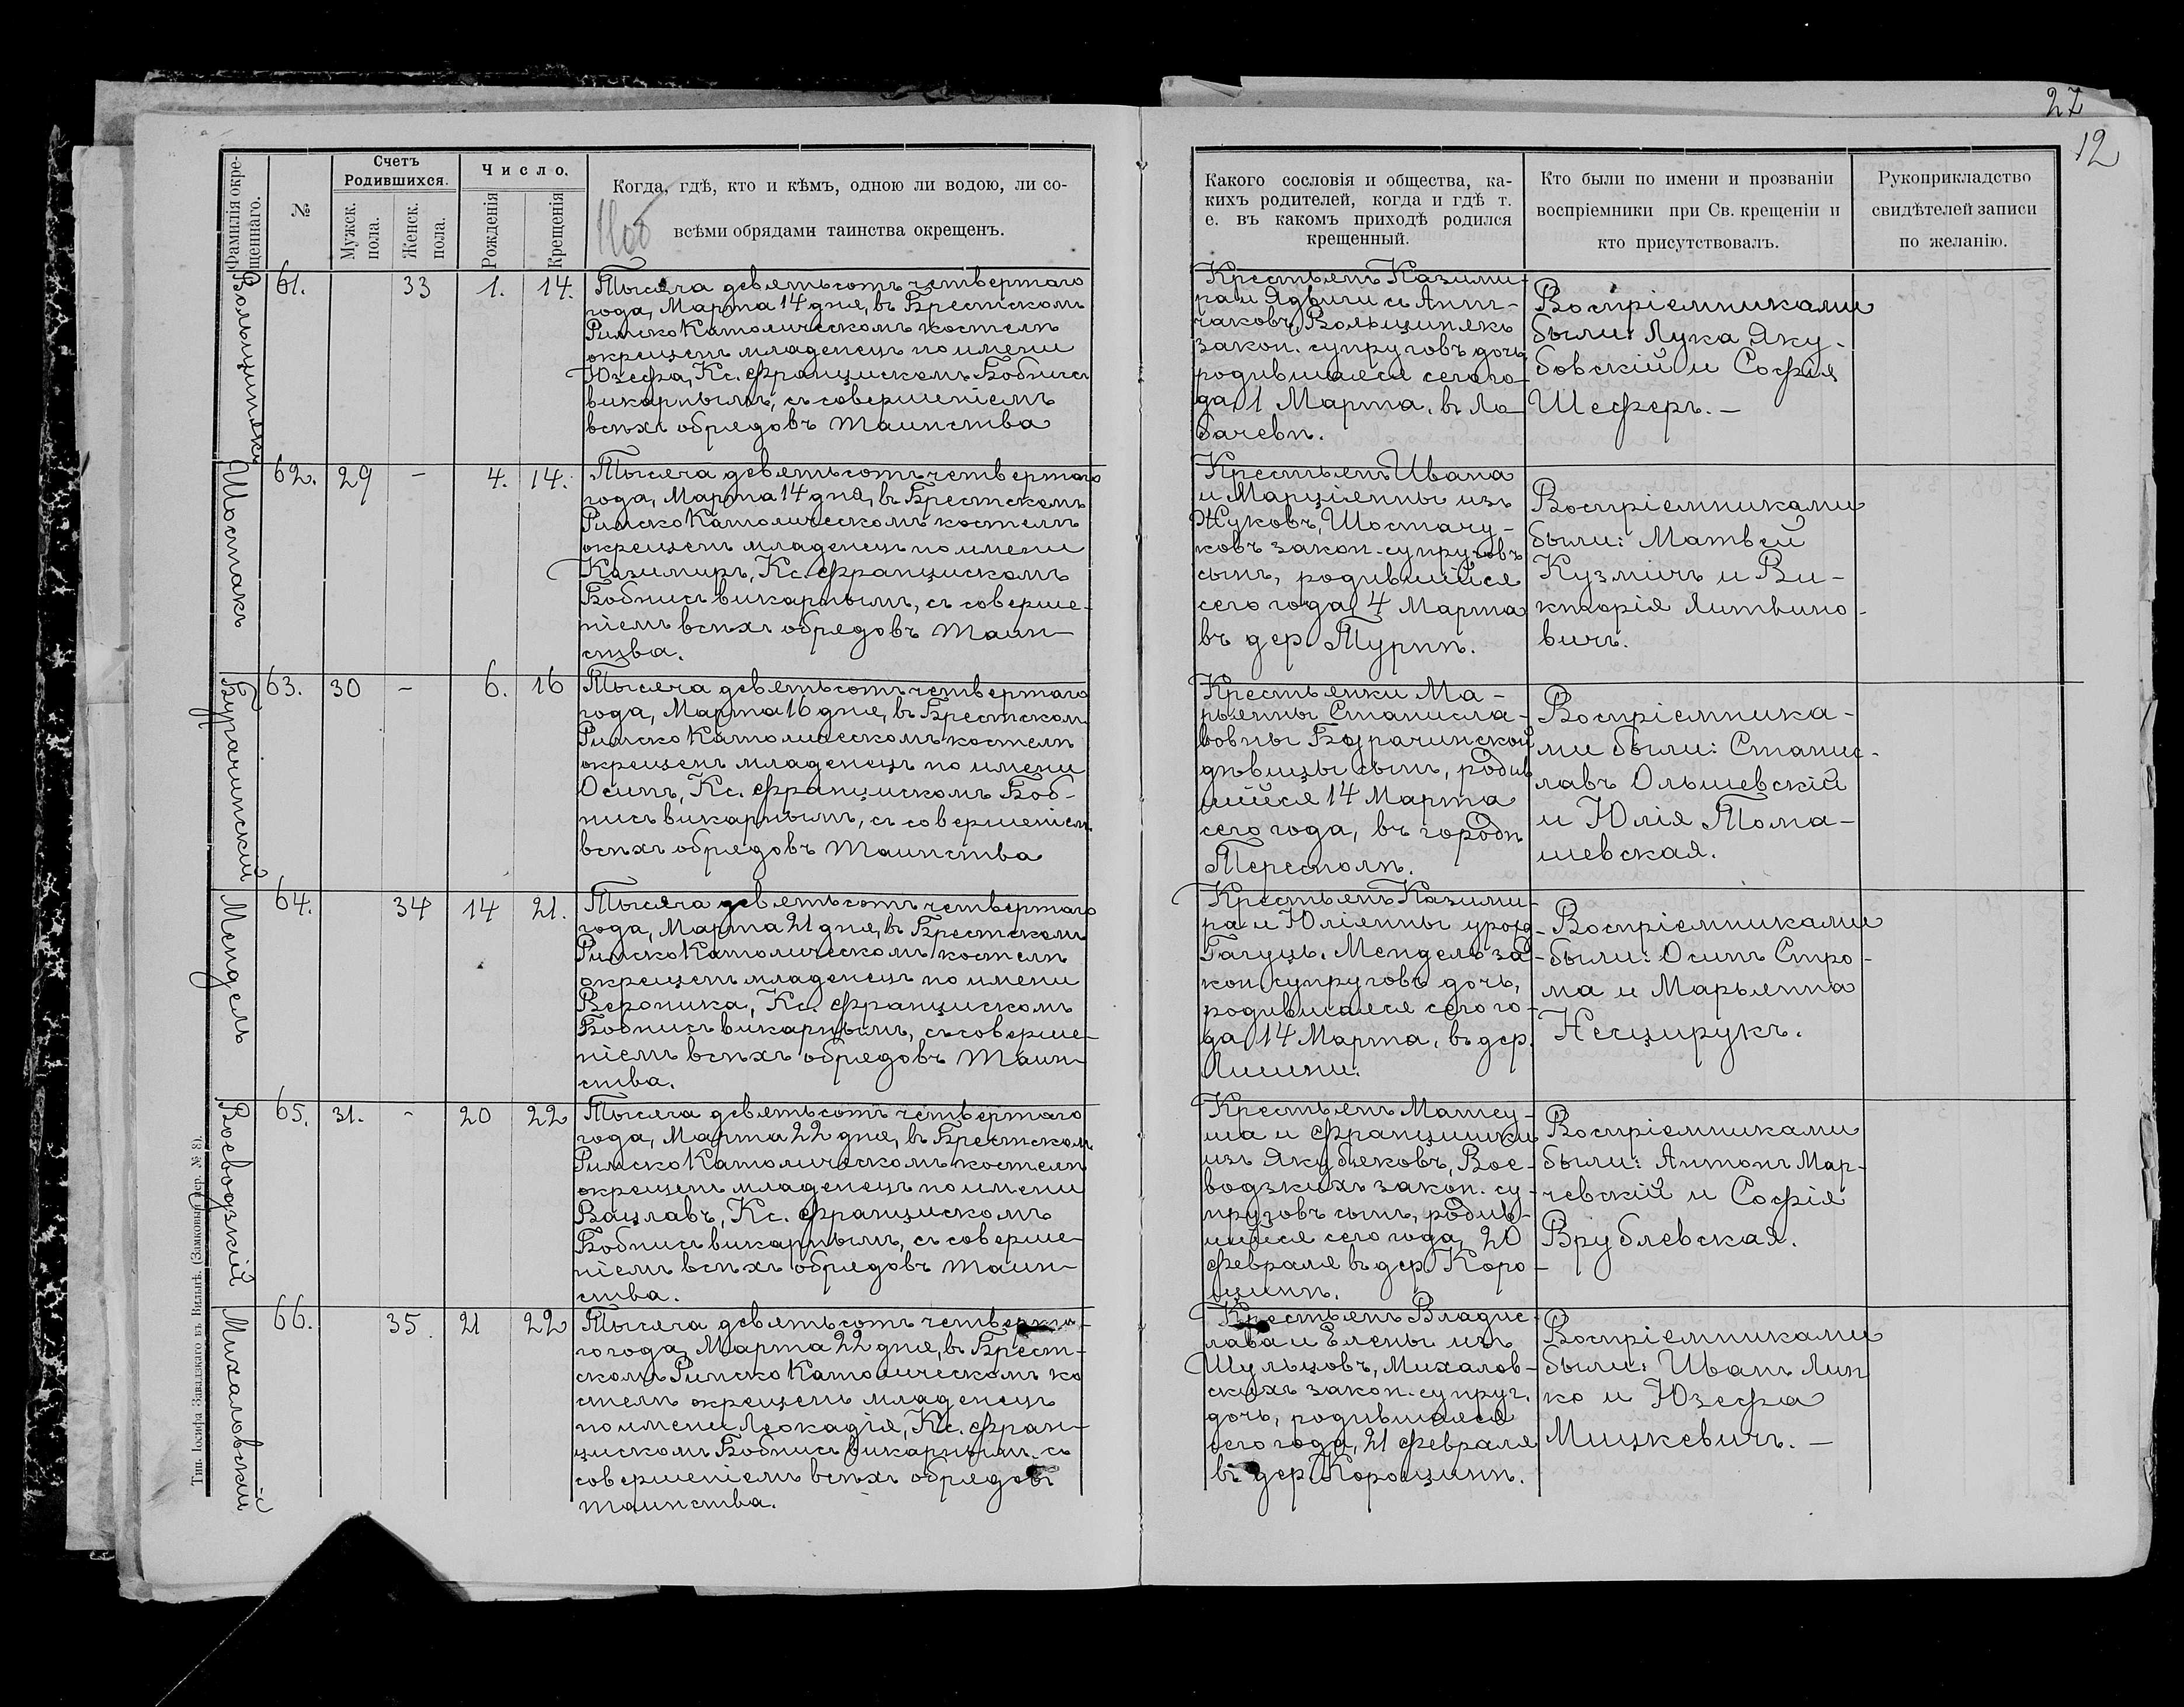 27
12
Фамилія окре-
щеннаго.
№
Счетъ
Родившихся.
Мужск.
пола.
Женск.
пола.
Число.
Рожденія
Крещенія
Когда, гдѣ, кто и кѣмъ, одною ли водою, ли со-
всѣми обрядами таинства окрещенъ.
Какого сословія и общества, ка-
кихъ родителей, когда и гдѣ т.
е. въ какомъ приходѣ родился
крещенный.
Кто были по имени и прозваніи
воспріемники при Св. крещеніи и
кто присутствовалъ.
Рукоприкладство
свидѣтелей записи
по желанію.
Вольщинякъ
61.
33
1.
14.
Тысяча девятьсотъ четвертаго
года, Марта 14 дня, въ Брестскомъ
Римско Католическомъ костелѣ
окрещенъ младенецъ по имени
Юзефа, Кс. Францискомъ Бобнисъ
викарнымъ, съ совершеніемъ
всѣхъ обрядовъ таинства
Крестьянъ Казими-
ра и Ядвиги съ Анто-
чаковъ, Вольщинякъ
закон. супруговъ дочь,
родившаяся сего го-
да 1 Марта, въ Ло-
бачевѣ.
Воспріемниками
были: Лука Яку-
бовскій и Софія
Шеферъ. —
Шостакъ
62.
29
-
4.
14.
Тысяча девятьсотъ четвертаго
года, Марта 14 дня, въ Брестскомъ
Римско Католическомъ костелѣ
окрещенъ младенецъ по имени
Казимиръ, Кс. Францискомъ
Бобнисъ викарнымъ, съ соверше-
ніемъ всѣхъ обрядовъ таин-
ства.
Крестьянъ Ивана
и Марціянны изъ
Жуковъ, Шостачу-
ковъ закон. супруговъ
сынъ, родившійся
сего года 4 Марта
въ дер. Турнѣ.
Воспріемниками
были: Матвей
Кузмичъ и Ви-
кторія Литвино-
вичъ.
Бурачинскій
63.
30
-
6.
16
Тысяча девятьсотъ четвертаго
года, Марта 16 дня, въ Брестскомъ
Римско Католическомъ костелѣ
окрещенъ младенецъ по имени
Осипъ, Кс. Францискомъ Боб-
нисъ викарнымъ, съ совершеніемъ
всѣхъ обрядовъ таинства
Крестьянки Ма-
рьянны Станисла-
вовны Бурачинской
дѣвицы сынъ, родив
шійся 14 Марта
сего года, въ городѣ
Тересполѣ.
Воспріемника-
ми были: Станис-
лавъ Ольшевскій
и Юлія Тома-
шевская.
Мендель
64.
34
14
21.
Тысяча девятьсотъ четвертаго
года, Марта 21 дня, въ Брестскомъ
Римско Католическомъ костелѣ
окрещенъ младенецъ по имени
Вероника, Кс. Францискомъ
Бобнисъ викарнымъ, съ соверше-
ніемъ всѣхъ обрядовъ таин-
ства.
Крестьянъ Казими-
ра и Юліянны урожд-
Гагуцъ. Мендель за-
кон. супруговъ дочь,
родившаяся сего го-
да 14 Марта, въ дер.
Воспріемниками
были: Осипъ Стро-
ма и Марьянна
Несцирукъ.
Воеводзкій
65.
31.
-
20
22
Тысяча девятьсотъ четвертаго
года, Марта 22 дня, въ Брестскомъ
Римско Католическомъ костелѣ
окрещенъ младенецъ по имени
Вацлавъ, Кс. Францискомъ
Бобнисъ викарнымъ, съ соверше-
ніемъ всѣхъ обрядовъ таин-
ства.
Крестьянъ Матеу-
ша и Францишки
изъ Якубяковъ, Вое-
водзкихъ закон. су-
пруговъ сынъ, родив-
шійся сего года, 20
февраля въ дер. Коро-
щинѣ.
Воспріемниками
были: Антонъ Мар-
чевскій и Софія
Врублевская.
Михаловскій
66.
35.
21
22
Тысяча девятьсотъ четверта-
го года, Марта 22 дня, въ Брест-
скомъ Римско Католическомъ ко
стелѣ окрещенъ младенецъ
по имени Леокадія, Кс. Фран-
цискомъ Бобнисъ викарнымъ, съ
совершеніемъ всѣхъ обрядовъ
таинства.
Крестьянъ Владис-
лава и Елены изъ
Шульцовъ, Михалов-
скихъ закон. супруг.
дочь, родившаяся
сего года, 21 февраля
въ дер. Корощинѣ.
Воспріемниками
были: Иванъ Лип
ко и Юзефа
Мицкевичъ. —
Тип. Іосифа Завадзкаго въ Вильнѣ. (Замковый пер. № 8).